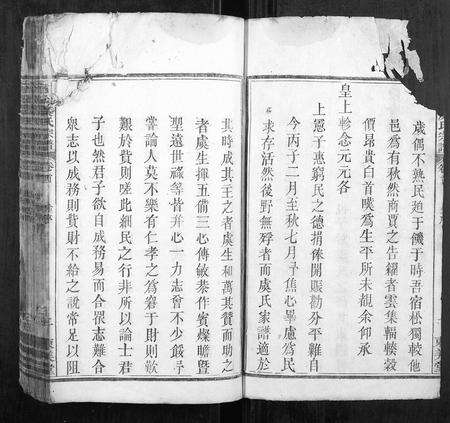 歲偶不熟民迫于饑于時吾宿松獨較他
邑爲有秋然商賈之告糴者雲集輻輳穀
價昂貴白首嘆爲生平所未覩余仰承
皇上軫念元元各
上憲子惠窮民之德捐俸開賑勸分平糶自
今丙子二月至秋七月予焦心畢慮爲民
求存活然後野無殍者而虞氏家譜適於
其時成其主之者虞生和萬其贊而助之
者虞生揮五備三心傳敏恭作賓燦瞻暨
聖遠世祿等皆并心一力志曾不少餒予
嘗論人莫不樂有仁孝之爲窘于財則歉
艱於貲則嗟此細民之行非所以論士君
子也然君子欲自成務易而合衆志難合
衆志以成務則貲財不給之說常足以阻